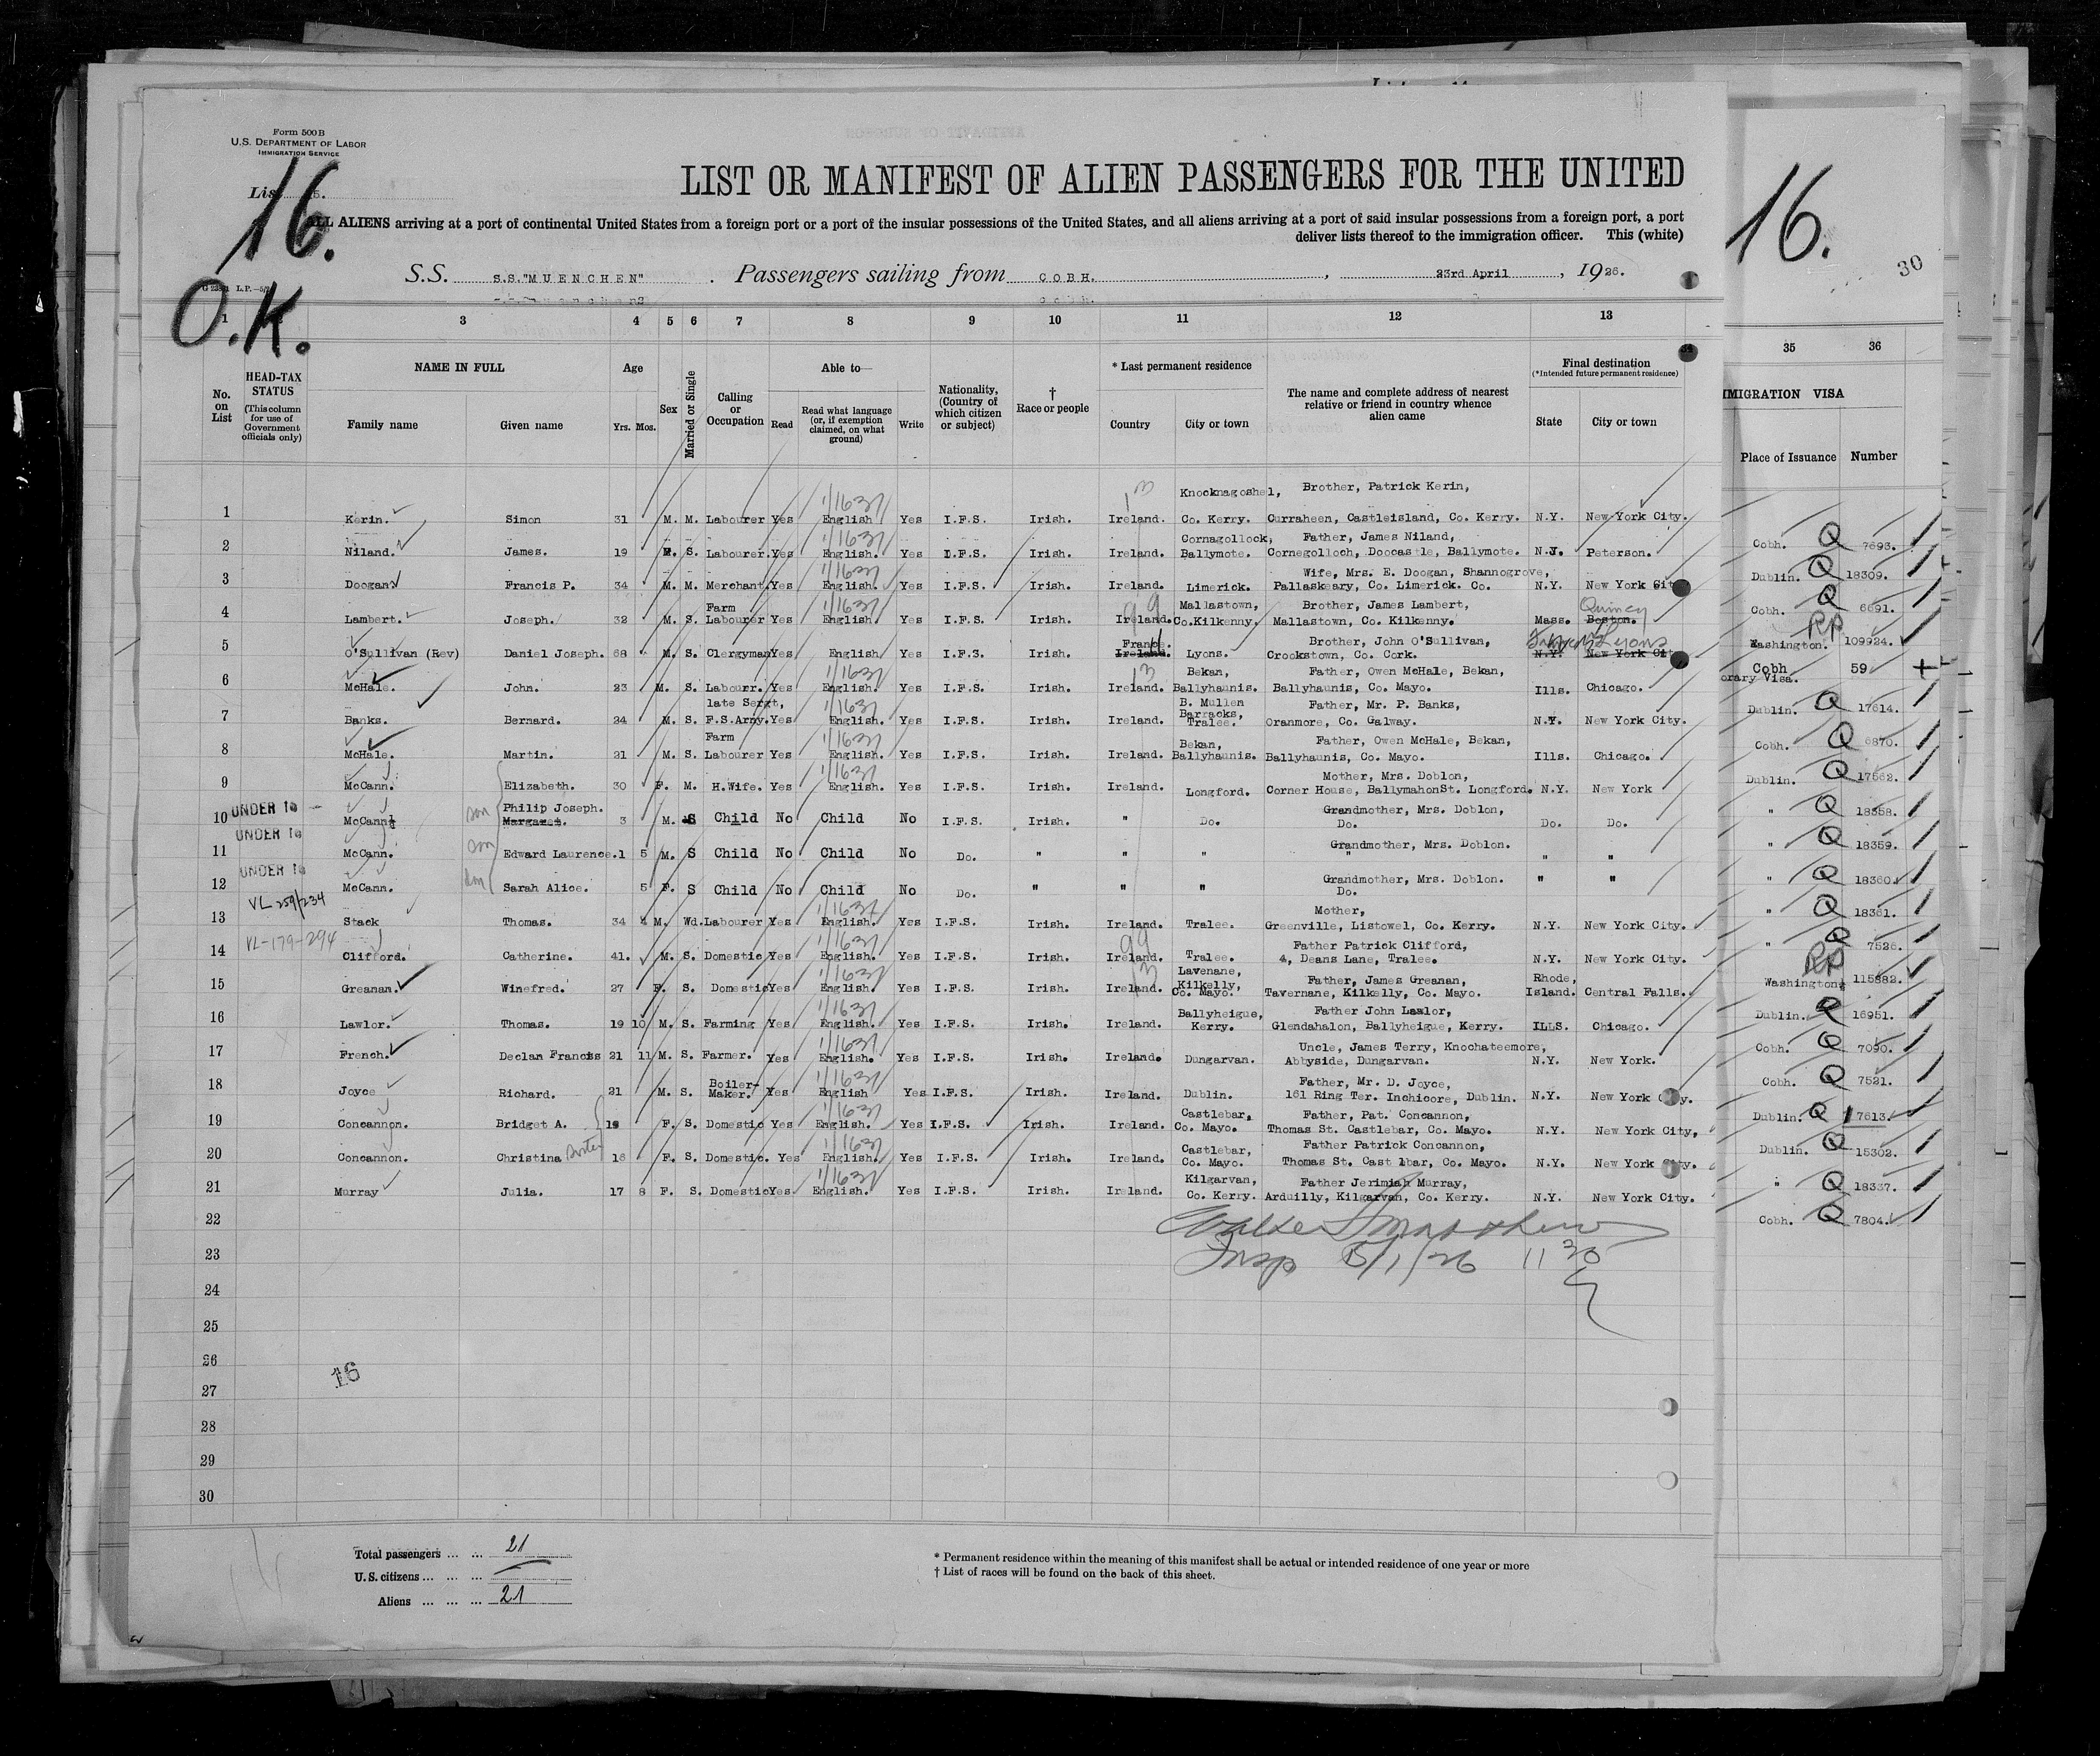 Form 500 B
U.S. DEPARTMENT OF LABOR
IMMIGRATION SERVICE
List 5.
16.
O.K.
LIST OR MANIFEST OF ALIEN PASSENGERS FOR THE UNITED
ALL ALIENS arriving at a port of continental United States from a foreign port or a port of the insular possessions of the United States, and all aliens arriving at a port of said insular possessions from a foreign port, a port
deliver lists thereof to the immigration officer. This (white)
S.S. S.S."MUENCHEN" . Passengers sailing from COBH. , 23rd April , 1926.
16.
30
1 3 4 5 6 7 8 9 10 11 12 13 34 35 36
No. on List
HEAD-TAX STATUS (This column for use of Government officials only)
NAME IN FULL
Family name Given name
Age Yrs. Mos.
Sex
Married or Single
Calling or Occupation
Able to—
Read Read what language (or, if exemption claimed, on what ground) Write
Nationality, (Country of which citizen or subject)
† Race or people
* Last permanent residence
Country City or town
The name and complete address of nearest relative or friend in country whence alien came
Final destination
(*Intended future permanent residence)
State City or town
IMMIGRATION VISA
Place of Issuance Number
Knocknagoshel, Brother, Patrick Kerin,
1 Kerin. Simon 31 M. M. Labourer Yes English Yes I.F.S. Irish. Ireland. Co. Kerry. Curraheen, Castleisland, Co. Kerry. N.Y. New York City. Cobh. Q 7693.
Cornagollock, Father, James Niland,
2 Niland. James. 19 M. S. Labourer. Yes English. Yes I.F.S. Irish. Ireland. Ballymote. Cornegolloch, Doocastle, Ballymote. N.J. Peterson. Dublin. Q 18309.
Wife, Mrs. E. Doogan, Shannogrove,
3 Doogan. Francis P. 34 M. M. Merchant. Yes English. Yes I.F.S. Irish. Ireland. Limerick. Pallaskeary, Co. Limerick. Co. N.Y. New York Cit Cobh. Q 6691.
Farm 99 Mallastown, Brother, James Lambert, Quincy
4 Lambert. Joseph. 32 M. S. Labourer Yes English Yes I.F.S. Irish. Ireland. Co.Kilkenny. Mallastown, Co. Kilkenny. Mass. Boston. Washington. RP 109924.
France. Brother, John O'Sullivan, France Lyons
5 O'Sullivan (Rev) Daniel Joseph. 68 M. S. Clergyman Yes English Yes I.F.S. Irish. Ireland. Lyons. Crookstown, Co. Cork. N.Y. New York Cit Cobh 59
orary Visa.
Bekan, Father, Owen McHale, Bekan,
6 McHale. John. 23 M. S. Labourr. Yes English. Yes I.F.S. Irish. Ireland. Ballyhaunis. Ballyhaunis, Co. Mayo. Ills. Chicago. Dublin. Q 17614.
late Sergt, B. Mullen Barracks, Father, Mr. P. Banks,
7 Banks. Bernard. 24 M. S. F.S.Army. Yes English. Yes I.F.S. Irish. Ireland. Tralee. Oranmore, Co. Galway. N.Y. New York City. Cobh. Q 6870.
Farm Bekan, Father, Owen McHale, Bekan,
8 McHale. Martin. 21 M. S. Labourer Yes English. Yes I.F.S. Irish. Ireland. Ballyhaunis. Ballyhaunis, Co. Mayo. Ills. Chicago. Dublin. Q 17562.
Mother, Mrs. Doblon,
9 McCann. Elizabeth. 30 F. M. H.Wife. Yes English. Yes I.F.S. Irish. Ireland. Longford. Corner House, BallymahonSt. Longford. N.Y. New York " Q 18358.
UNDER 16 son Philip Joseph. Grandmother, Mrs. Doblon,
10 McCann. Margaret. 3 M. S Child No Child No I.F.S. Irish. " Do. Do. Do. Do. " Q 18359.
UNDER 16 son Grandmother, Mrs. Doblon.
11 McCann. Edward Laurence. 1 5 M. S Child No Child No Do. " " " " " " " Q 18360.
UNDER 16 Grandmother, Mrs. Doblon.
12 McCann. Sarah Alice. 5 F. S Child No Child No Do. " " " Do. " " " Q 18361.
VL 259/234 Mother,
13 Stack Thomas. 34 4 M. Wd. Labourer Yes English. Yes I.F.S. Irish. Ireland. Tralee. Greenville, Listowel, Co. Kerry. N.Y. New York City. " Q 7526.
VL-179-294 99 Father Patrick Clifford,
14 Clifford. Catherine. 41. M. S. Domestic Yes English. Yes I.F.S. Irish. Ireland. Tralee. 4, Deans Lane, Tralee. N.Y. New York City. Washington. RP 115882.
Lavenane, Kilkelly, Father, James Greanan, Rhode,
15 Greanan. Winefred. 27 F. S. Domestic Yes English. Yes I.F.S. Irish. Ireland. Co. Mayo. Tavernane, Kilkelly, Co. Mayo. Island. Central Falls. Dublin. Q 16951.
Ballyheigue, Father John Lawlor,
16 Lawlor. Thomas. 19 10 M. S. Farming Yes English. Yes I.F.S. Irish. Ireland. Kerry. Glendahalon, Ballyheigue, Kerry. ILLS. Chicago. Cobh. Q 7090.
Uncle, James Terry, Knochateemore,
17 French. Declan Francis 21 11 M. S. Farmer. Yes English. Yes I.F.S. Irish. Ireland. Dungarvan. Abbyside, Dungarvan. N.Y. New York. Cobh. Q 7521.
Boiler- Father, Mr. D. Joyce,
18 Joyce Richard. 21 M. S. Maker. Yes English Yes I.F.S. Irish. Ireland. Dublin. 161 Ring Ter. Inchicore, Dublin. N.Y. New York City. Dublin. Q 17613.
Castlebar, Father, Pat. Concannon,
19 Concannon. Bridget A. 19 F. S. Domestic Yes English. Yes I.F.S. Irish. Ireland. Co. Mayo. Thomas St. Castlebar, Co. Mayo. N.Y. New York City, Dublin. Q 15302.
Castlebar, Father Patrick Concannon,
20 Concannon. Christina sister 16 F. S. Domestic. Yes English. Yes I.F.S. Irish. Ireland. Co. Mayo. Thomas St. Cast lbar, Co. Mayo. N.Y. New York City. " Q 18337.
Kilgarvan, Father Jerimiah Murray,
21 Murray Julia. 17 8 F. S. Domestic Yes English. Yes I.F.S. Irish. Ireland. Co. Kerry. Arduilly, Kilgarvan, Co. Kerry. N.Y. New York City. Cobh. Q 7804.
22
Insp 5/1/26 11 30
23
24
25
26
27
28
29
30
16
Total passengers ... ... 21
U.S. citizens ... ... ...
Aliens ... ... ... 21
* Permanent residence within the meaning of this manifest shall be actual or intended residence of one year or more
† List of races will be found on the back of this sheet.